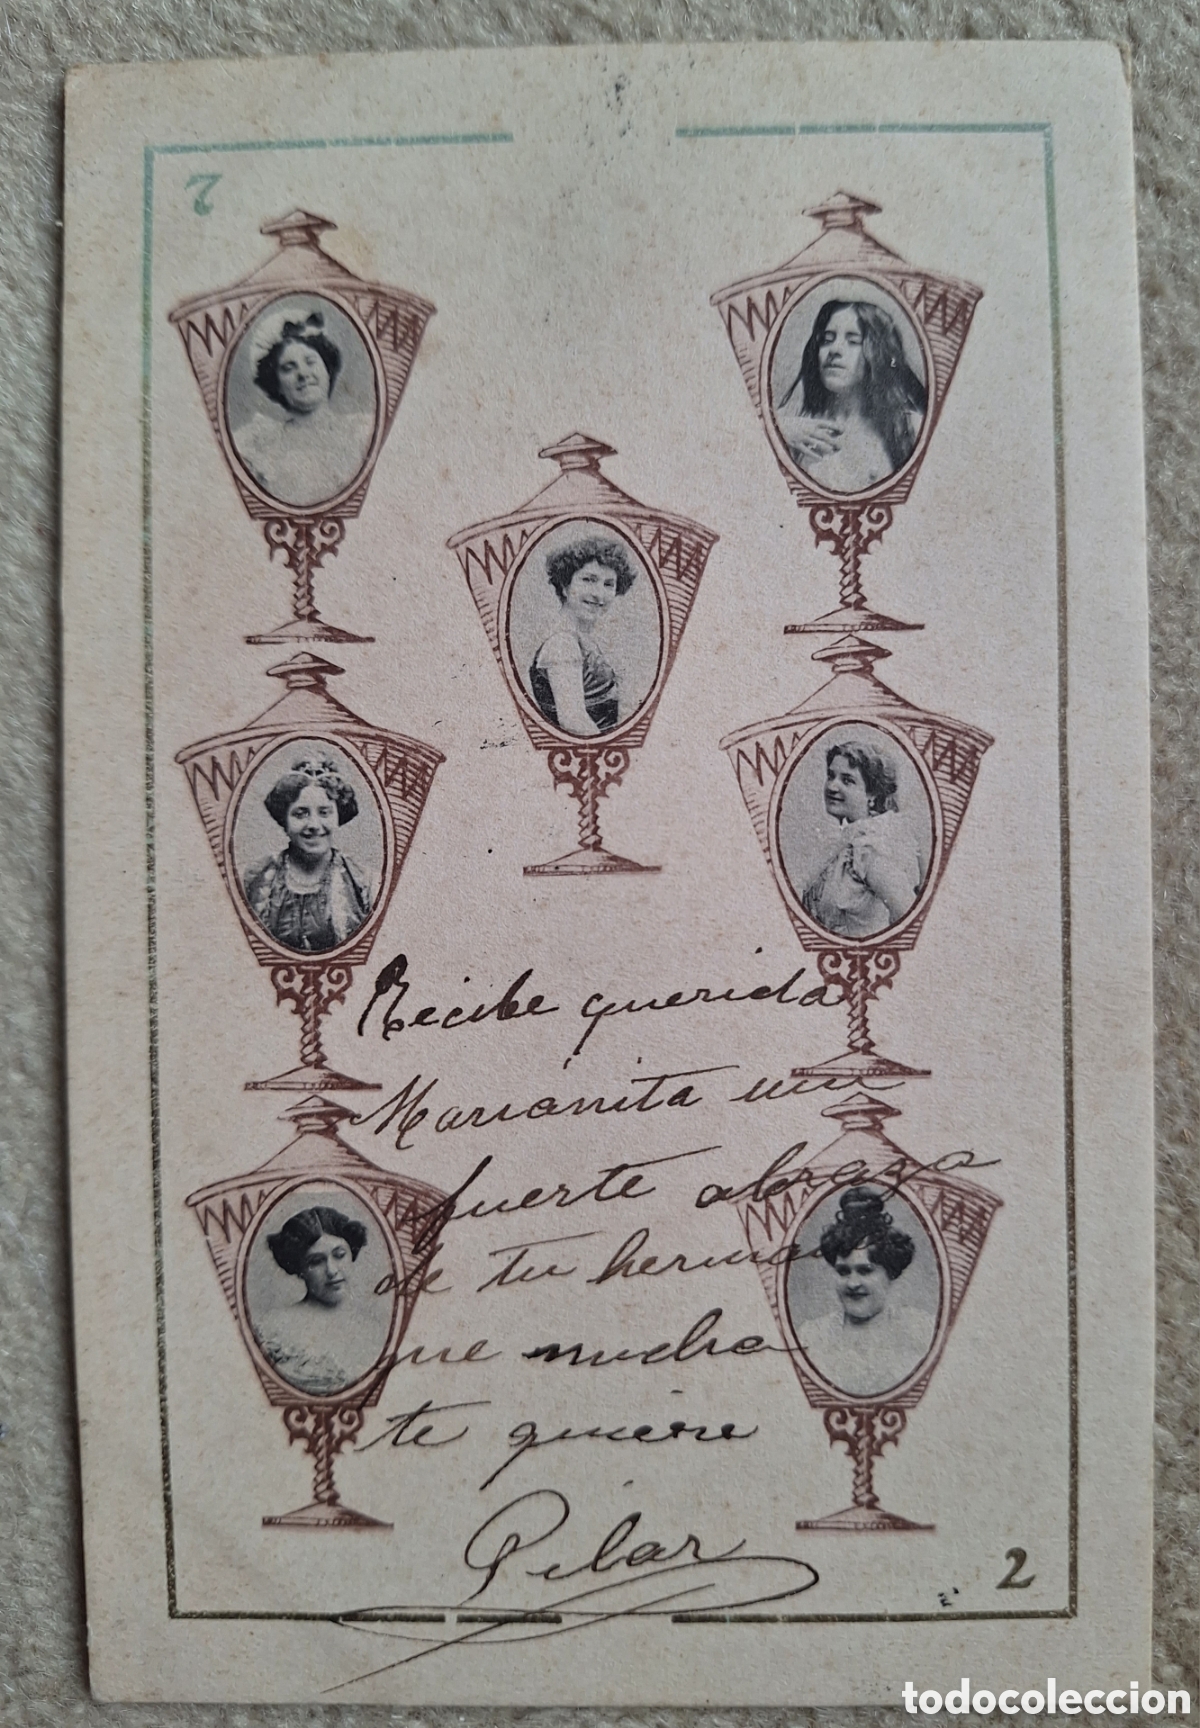 7
Recibe querida
Marianita un
fuerte abrazo
de tu hermana
que mucho
te quiere
Pilar
2
todocoleccion